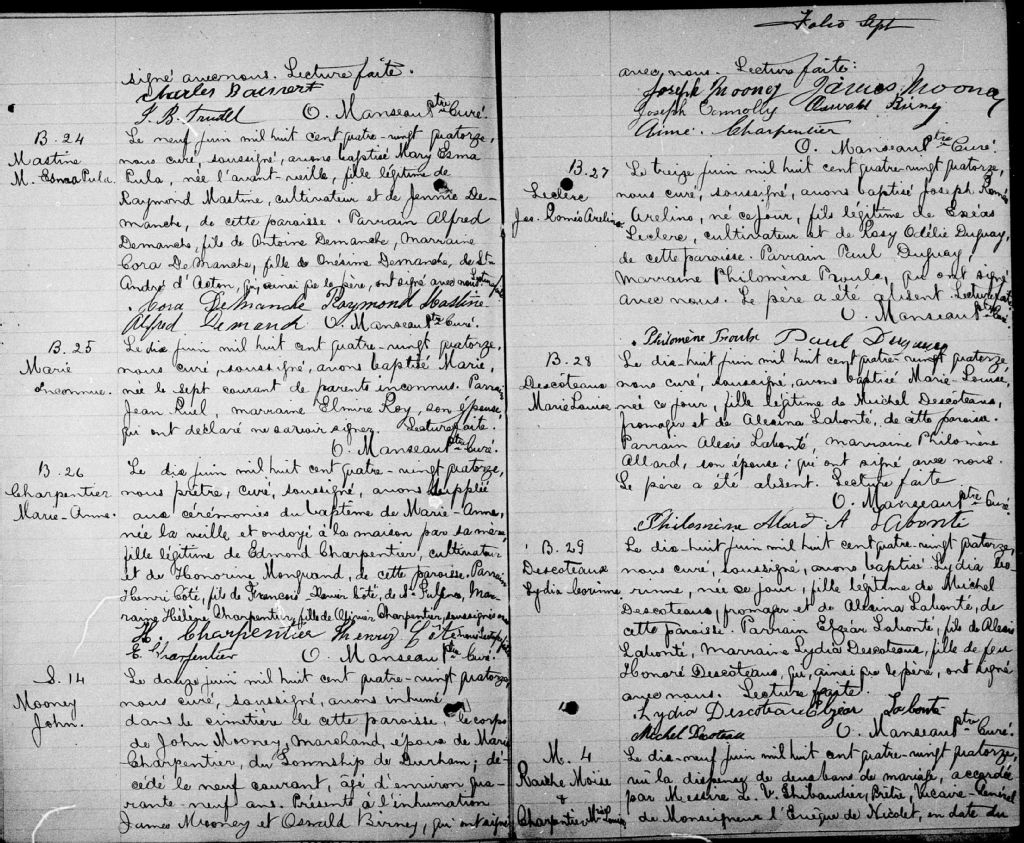 signé avec nous. Lecture faite.
Charles Boisvert
J. B. Trudel O. Manseau Ptre Curé.
B. 24
Mastine
M. Esma Pula
Le neuf juin mil huit cent quatre-vingt quatorze,
nous curé, soussigné, avons baptisé Mary Esma
Pula, née l'avant-veille, fille légitime de
Raymond Mastine, cultivateur et de Jennie De-
manche, de cette paroisse. Parrain Alfred
Demanche, fils de Antoine Demanche, marraine
Cora Demanche, fille de Onésime Demanche, de St-
André d'Acton, qui, ainsi que le père, ont signé avec nous. Lecture faite
Cora Demanche Raymond Mastine
Alfred Demanch O. Manseau Ptre Curé.
B. 25
Marie
inconnue.
Le dix juin mil huit cent quatre-vingt quatorze,
nous curé, soussigné, avons baptisé Marie,
née le sept courant de parents inconnus. Parrain
Jean Ruel, marraine Elmire Roy, son épouse,
qui ont déclaré ne savoir signer. Lecture faite.
O. Manseau Ptre Curé.
B. 26
Charpentier
Marie-Anne.
Le dix juin mil huit cent quatre-vingt quatorze,
nous prêtre, curé, soussigné, avons suppléé
aux cérémonies du baptême de Marie-Anne,
née la veille et ondoyé à la maison par sa mère,
fille légitime de Edmond Charpentier, cultivateur
et de Honorine Mongrand, de cette paroisse. Parrain
Henri Côté, fils de François Xavier Côté, de St-Fulgence, Mar-
raine Hélène Charpentier, fille de Ojésier Charpentier, soussignés avec
nous. Lecture faite
H. Charpentier Henry Côté
E. Charpentier O. Manseau Ptre Curé.
S. 14
Mooney
John.
Le douze juin mil huit cent quatre-vingt quatorze,
nous curé, soussigné, avons inhumé
dans le cimetière de cette paroisse, le corps
de John Mooney, marchand, époux de Marie
Charpentier, du Township de Durham; dé-
cédé le neuf courant, âgé d'environ qua-
rante-neuf ans. Présents à l'inhumation
James Mooney et Oswald Birney, qui ont signé
Folio Sept
avec nous. Lecture faite:
Joseph Mooney James Mooney
Joseph Connolly Oswald Birney
Aimé Charpentier
O. Manseau Ptre Curé.
B. 27
Leclerc
Jos. Roméo Arelino
Le treize juin mil huit cent quatre-vingt quatorze,
nous curé, soussigné, avons baptisé Joseph Roméo
Arelino, né ce jour, fils légitime de Exéas
Leclerc, cultivateur et de Rosy Odélie Duguay,
de cette paroisse. Parrain Paul Duguay,
Marraine Philomène Proulx, qui ont signé
avec nous. Le père a été absent. Lecture faite
O. Manseau Ptre Curé.
Philomène Proulx Paul Duguay
B. 28
Descôteaux
Marie Louise
Le dix-huit juin mil huit cent quatre-vingt quatorze
nous curé, soussigné, avons baptisé Marie-Louise,
née ce jour, fille légitime de Michel Descoteaux,
fromager et de Alexina Labonté, de cette paroisse.
Parrain Alexis Labonté, marraine Philomène
Allard, son épouse; qui ont signé avec nous.
Le père a été absent. Lecture faite
O. Manseau Ptre Curé.
Philomène Alard A Labonté
B. 29
Descoteaux
Lydia Corinne
Le dix-huit juin mil huit cent quatre-vingt quatorze,
nous curé, soussigné, avons baptisé Lydia Co-
rinne, née ce jour, fille légitime de Michel
Descoteaux, fromager et de Alexina Labonté, de
cette paroisse. Parrain Elzéar Labonté, fils de Alexis
Labonté, Marraine Lydia Descoteaux, fille de feu
Honoré Descoteaux, qui, ainsi que le père, ont signé
avec nous. Lecture faite.
Lydia Descoteau Elzear Labonté
Michel Descoteau O. Manseau Ptre Curé.
M. 4
Barthe Moïse
&
Charpentier Mie Louise
Le dix-neuf juin mil huit cent quatre-vingt quatorze,
vu la dispense de deux bans de mariage, accordée
par Messire L. V. Thibaudier, Prêtre, Vicaire-Général
de Monseigneur l'Evêque de Nicolet, en date du